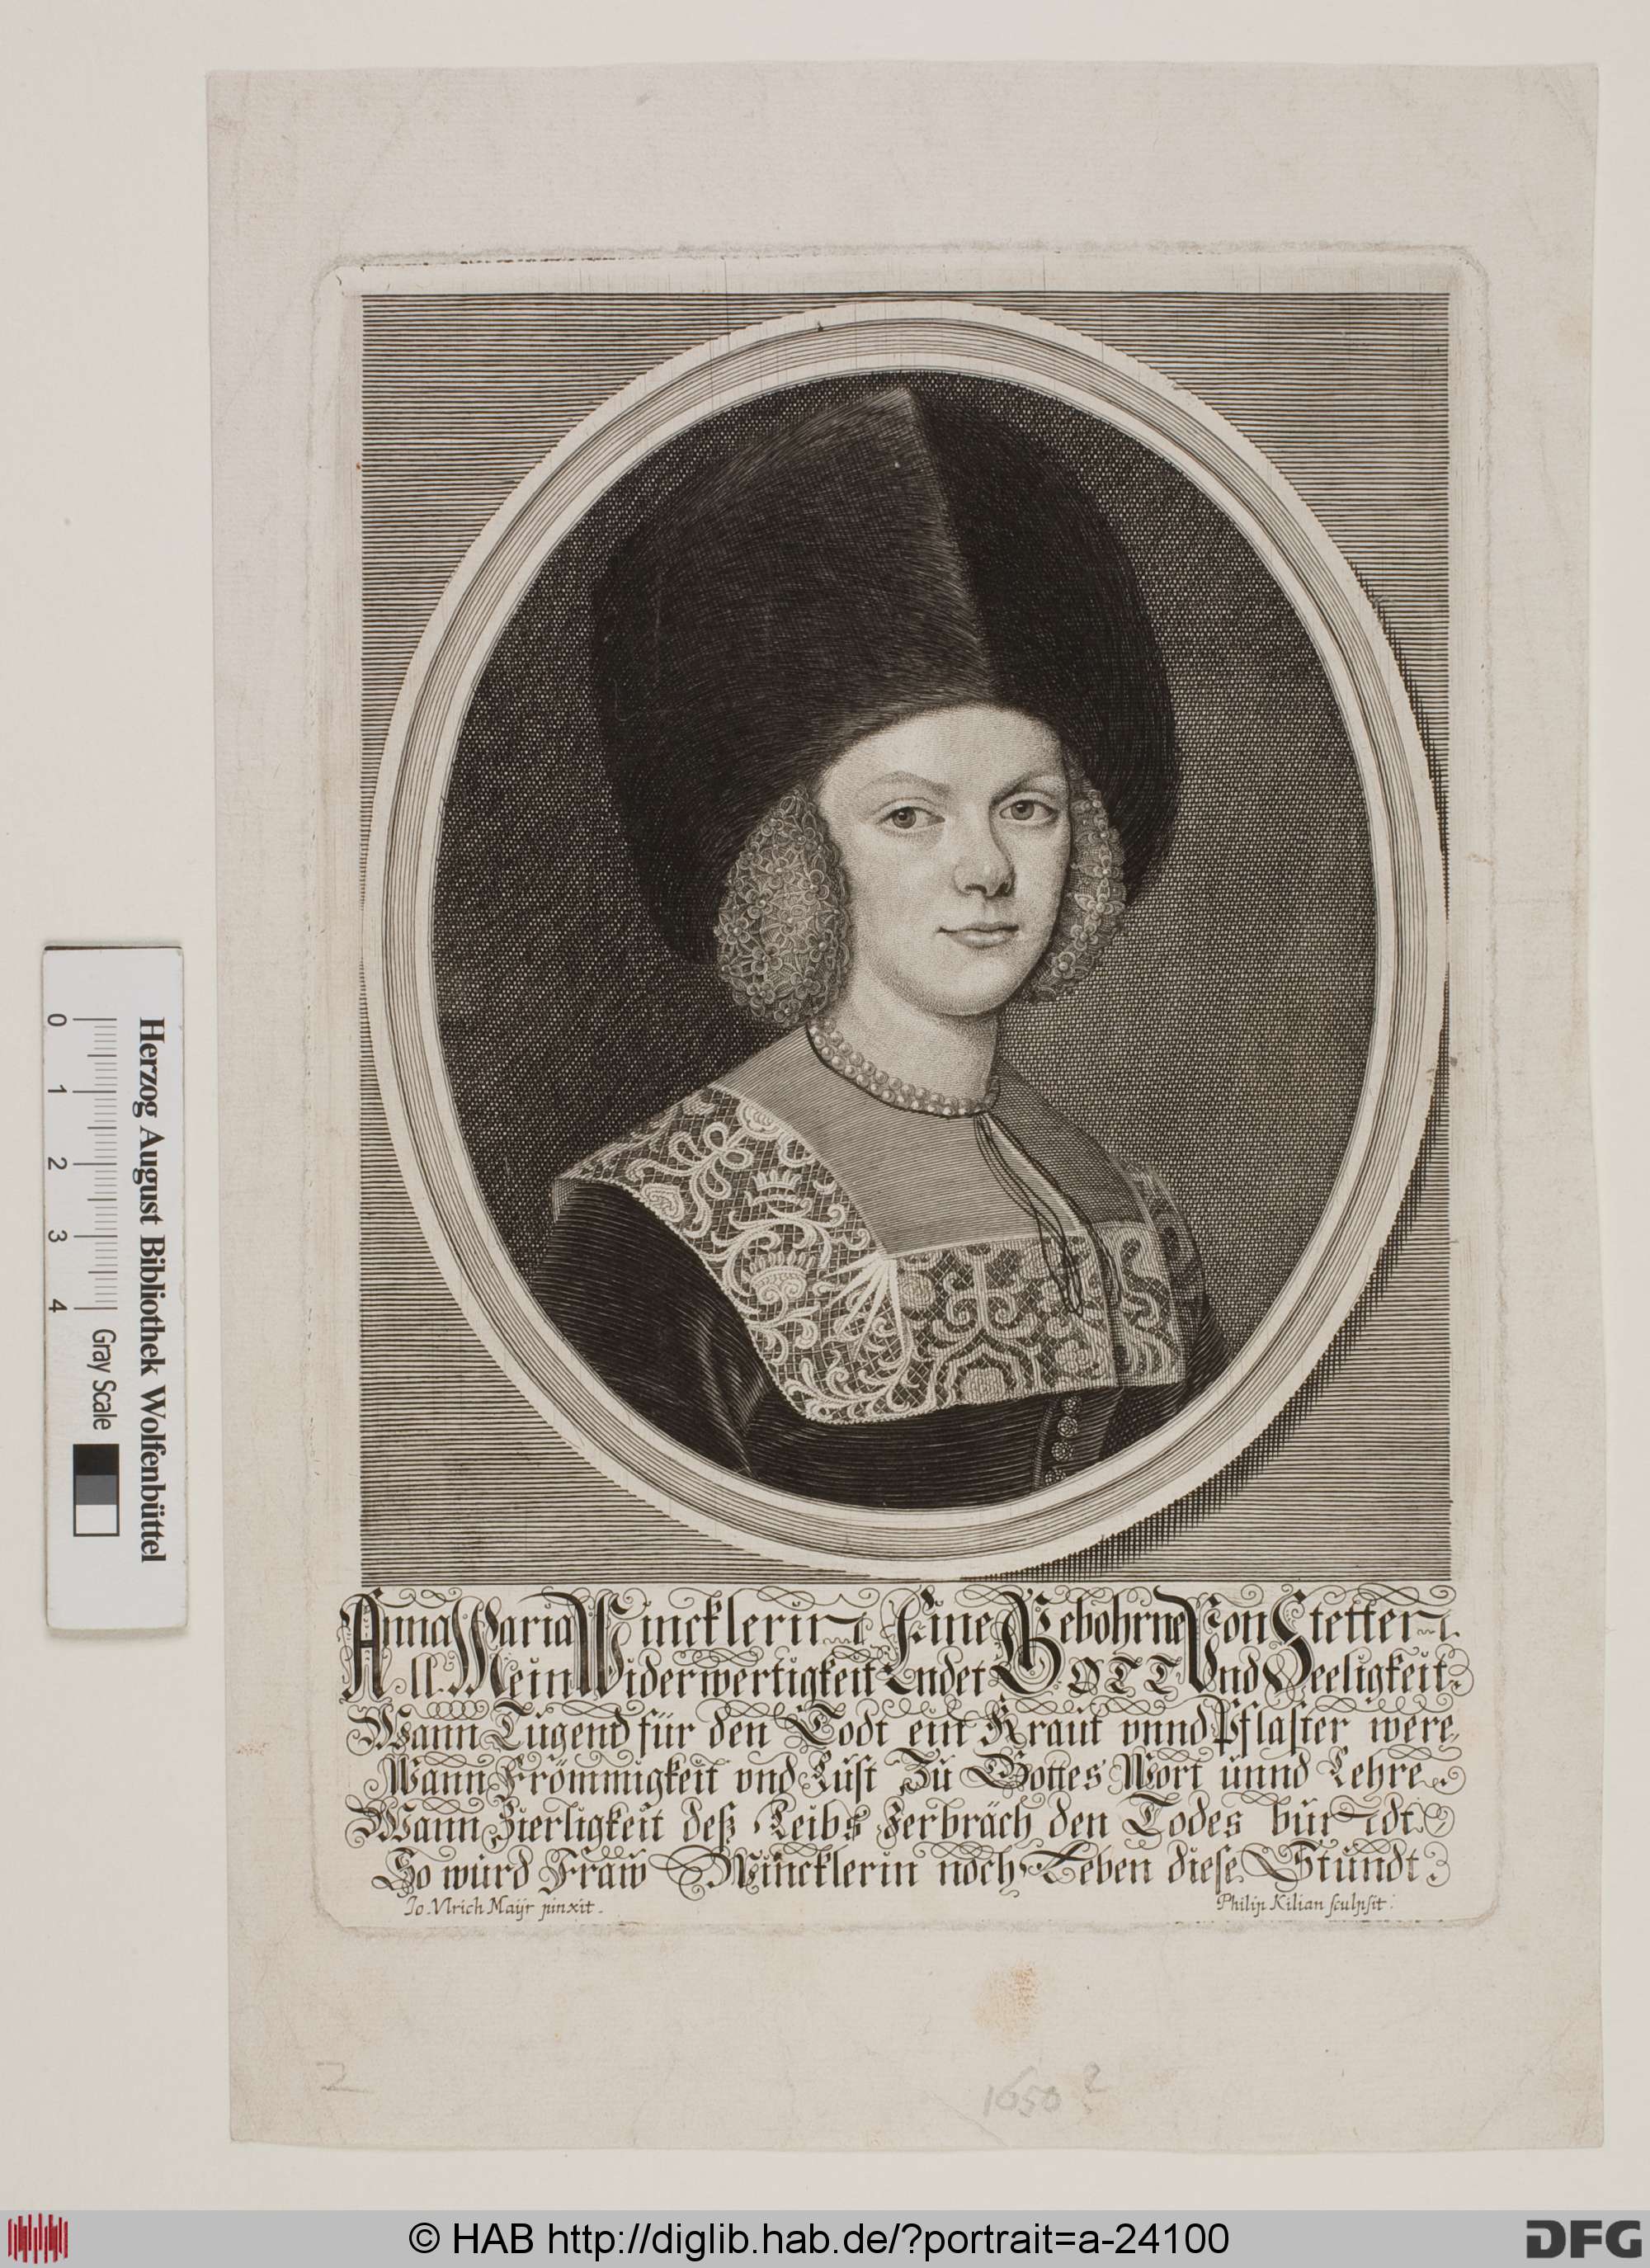 Anna Maria Wincklerin, Eine Gebohrne Von Stetten.
All Mein Widerwertigkeit Endet GOTT Vnd Seeligkeit.
Wann Tugend für den Todt ein Kraut vnnd Pflaster were,
Wann Frömmigkeit vnd Lust Zu Gottes Wort unnd Lehre
Wann Zierligkeit deß Leibs Zerbräch den Todes bundt
So wurd Fraw Wincklerin noch Leben diese Stundt.
Jo. Vlrich Maÿr pinxit.
Philip Kilian sculpsit.
2
1650 ?
Herzog August Bibliothek Wolfenbüttel
0 1 2 3 4 Gray Scale
© HAB http://diglib.hab.de/?portrait=a-24100
DFG